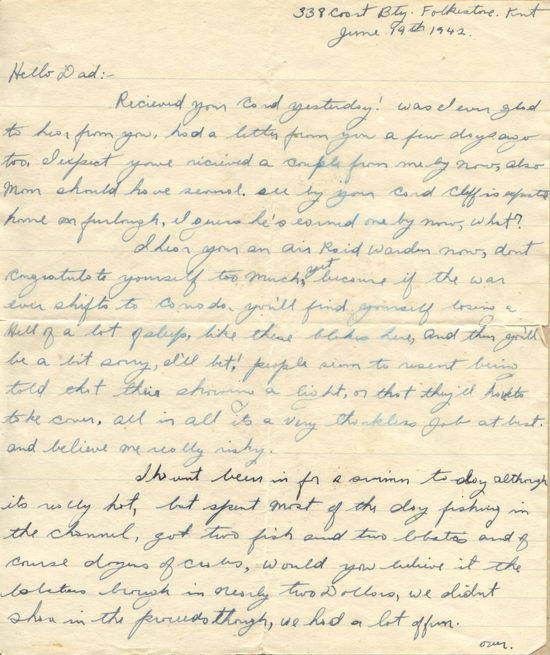 338 Coast Bty. Folkestone. Knt
June 19th 1942.
Hello Dad:-
Recieved your card yesterday! was I ever glad
to hear from you, had a letter from you a few days ago
too, I expect youve recieved a couple from me by now, also
Mom should have several. see by your card Cliff is expected
home on furlough, I guess he's earned one by now, what?
I hear your an Air Raid Warden now, dont
congratulate yourself too much, yet because if the war
ever shifts to Canada, you'll find yourself losing a
Hell of a lot of sleep, like these blokes here, and then you'll
be a bit sorry, I'll bet! people seem to resent being
told that their showing a light, or that they'll have to
take cover, all in all its a very thankless job at best.
and believe me really risky.
I havent been in for a swimm to day although
its really hot, but spent most of the day fishing in
the channel, got two fish and two lobsters and of
course dozens of crabs, would you believe it the
lobsters brough in nearly two Dollars, we didnt
share in the proceeds though, we had a lot of fun.
over.